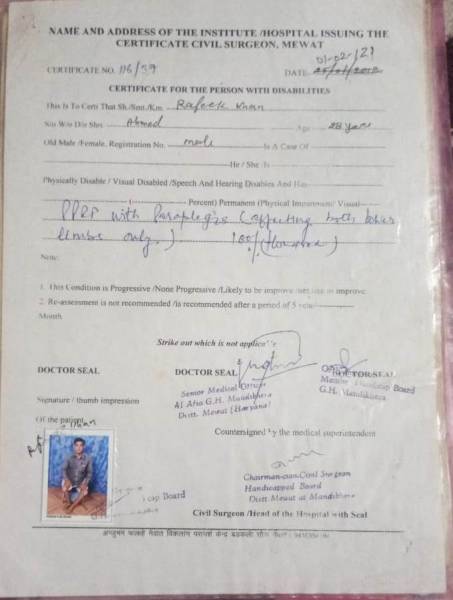 NAME AND ADDRESS OF THE INSTITUTE /HOSPITAL ISSUING THE
CERTIFICATE CIVIL SURGEON, MEWAT
01-02-/21
CERTIFICATE NO. 116/59 DATE
CERTIFICATE FOR THE PERSON WITH DISABILITIES
This Is To Certi That Sh./Smt./Km. Rafeek Khan
S/o W/o D/o Shri Ahmed Age 28 years
Old Male /Female, Registration No. male Is A Case Of
He / She /Is
Physically Disable / Visual Disabled /Speech And Hearing Disables And Has
Percent) Permanent (Physical Impairment/ Visual
PPRP with Paraplegia (affecting both lower
limbs only.) 100% (Hundred)
Note:
1. This Condition is Progressive /None Progressive /Likely to be improve /not like to improve
2. Re-assessment is not recommended /is recommended after a period of 5 year
Month
Strike out which is not applicable
DOCTOR SEAL DOCTOR SEAL DOCTOR SEAL
Senior Medical Officer
Al Afia G.H. Mandikhera
Distt. Mewat (Haryana)
Member Handicap Board
G.H. Mandikhera
Signature / thumb impression
Of the patient
Countersigned by the medical superintendent
cap Board
Chairman-cum-Civil Surgeon
Handicapped Board
Distt. Mewat at Mandikhera
Civil Surgeon /Head of the Hospital with Seal